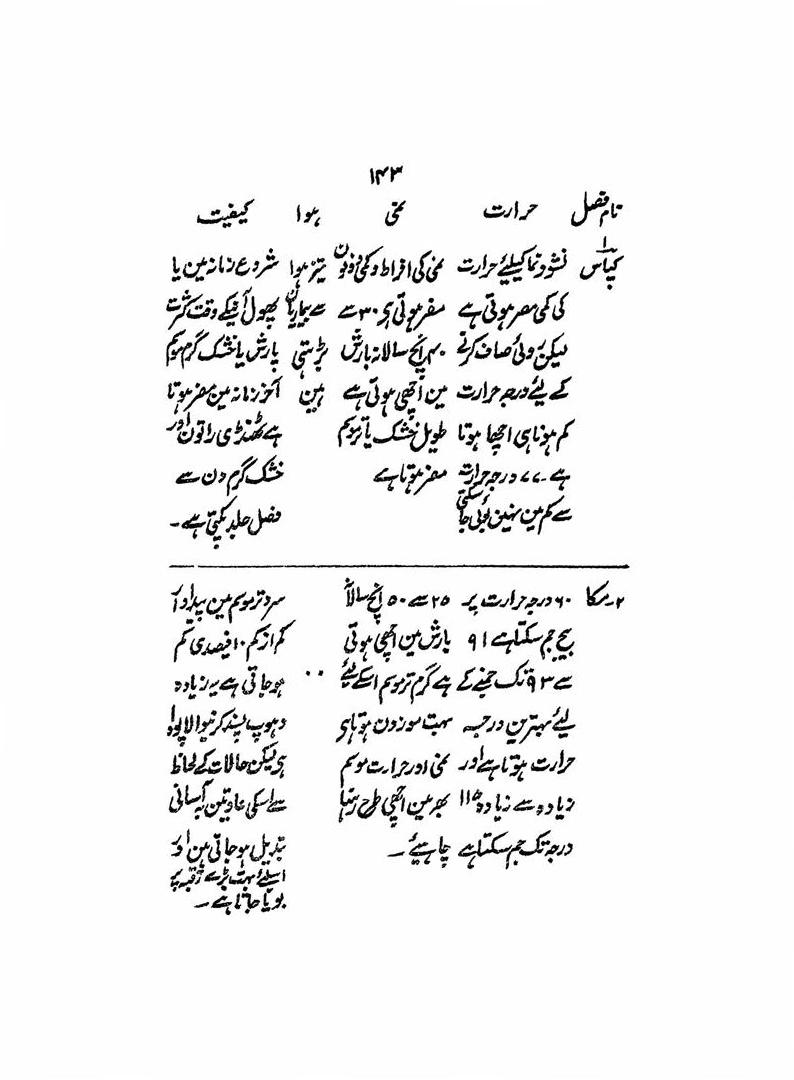 ۱۴۳
نام فصل حرارت نمی ہوا کیفیت
۱ کپاس نشوونما کیلئے حرارت نمی کی افراط و کمی دونوں تیز ہوا شروع زمانہ مین یا
کی کمی مضر ہوتی ہے مضر ہوتی ہی ۳۰ سے سے بیماریاں پھول آنیکے وقت کثرت
لیکن روئی صاف کرنے ۴۰ انچ سالانہ بارش پڑ سکتی بارش یا خشک گرم موسم
کے لیئے درجہ حرارت مین اچھی ہوتی ہے ہین آخر زمانہ مین مضر ہوتا
کم ہونا ہی اچھا ہوتا طویل خشک یا تر موسم ہے ٹھنڈی راتون اور
ہے۔ ۷۷ درجہ حرارت مضر ہوتا ہے خشک گرم دن سے
سے کم مین نہین بوئی جا سکتی فصل جلد پکتی ہے۔
۲۔ مکا ۶۰ درجہ حرارت پر ۲۵ سے ۵۰ انچ سالانہ سرد تر موسم مین پیداوار
بیج جم سکتا ہے ۹۱ بارش مین اچھی ہوتی کم از کم ۱۰ فیصدی کم
سے ۹۳ تک جمنے کے ہے گرم تر موسم اسکے لیئے ۰۰ ہو جاتی ہے یہ زیادہ
لیئے بہترین درجہ بہت موزون ہوتا ہی دہوپ پسند کرنیوالا پودا
حرارت ہوتا ہے اور نمی اور حرارت موسم ہی لیکن حالات کے لحاظ
زیادہ سے زیادہ ۱۱۵ بھر مین اچھی طرح رہنا سے اسکی عادتین بآسانی
درجہ تک جم سکتا ہے چاہیئے۔ تبدیل ہو جاتی ہین اور
اسلئے بہت بڑے رقبہ پر
بویا جاتا ہے۔